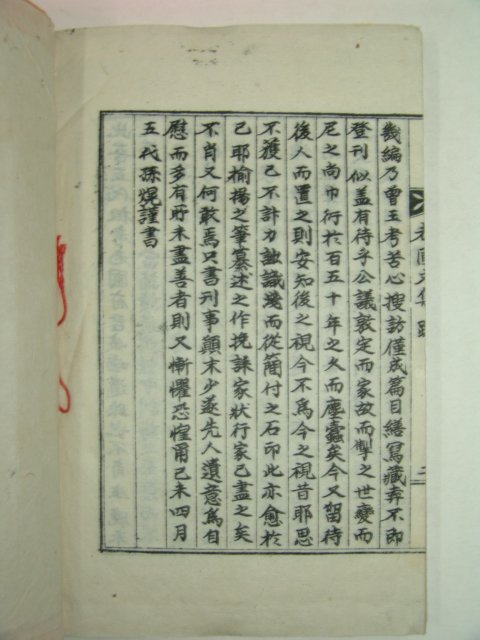 幾編乃曾王考苦心搜訪僅成篇目繕寫藏弆不卽
登刊似盖有待乎公議敦定而家故而掣之世變而
尼之尚巾衍於百五十年之久而塵蠧矣今又留待
後人而置之則安知後之視今不爲今之視昔耶思
不獲已不計力詘識淺而從簡付之石印此亦愈於
已耶揄揚之筆纂述之作挽誄家狀行家已盡之矣
不肖又何敢焉只書刊事顚末少遂先人遺意爲自
慰而多有所未盡善者則又慚懼恐惶甭己未四月
五代孫焜謹書
文集 跋
二